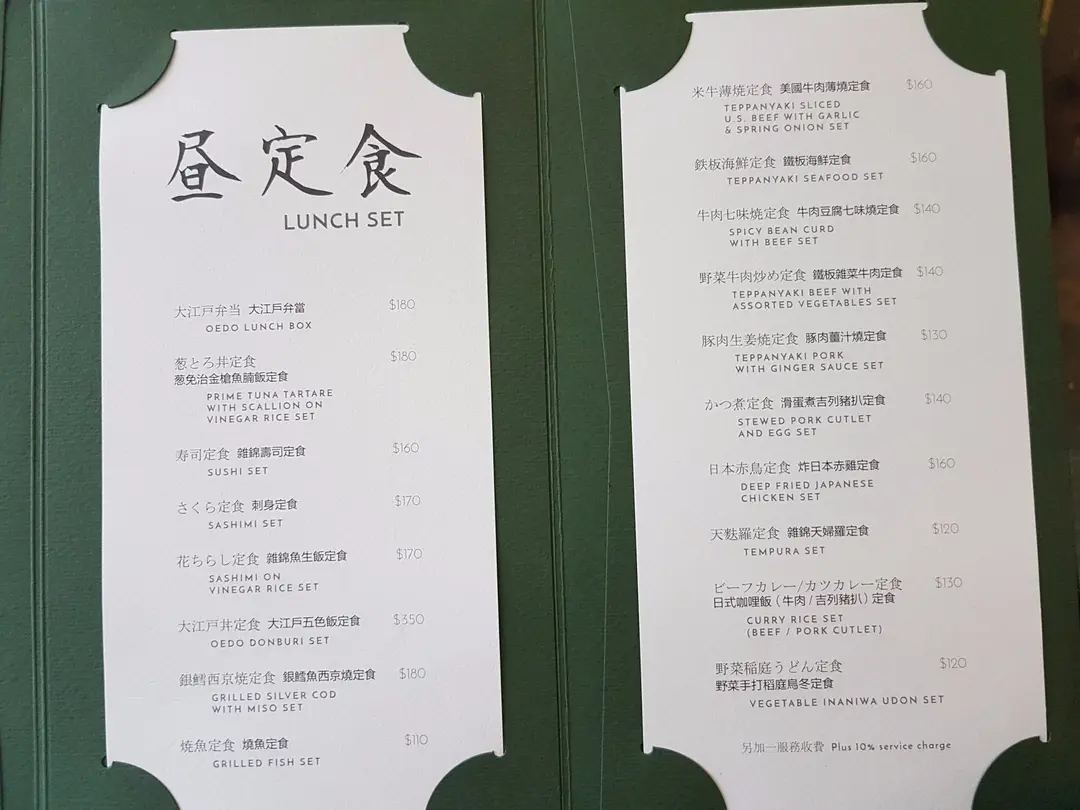 昼定食
LUNCH SET
大江戸弁当 大江戶弁當 $180
OEDO LUNCH BOX
葱とろ丼定食 $180
葱免治金槍魚腩飯定食
PRIME TUNA TARTARE
WITH SCALLION ON
VINEGAR RICE SET
寿司定食 雜錦壽司定食 $160
SUSHI SET
さくら定食 刺身定食 $170
SASHIMI SET
花ちらし定食 雜錦魚生飯定食 $170
SASHIMI ON
VINEGAR RICE SET
大江戸丼定食 大江戶五色飯定食 $350
OEDO DONBURI SET
銀鱈西京焼定食 銀鱈魚西京燒定食 $180
GRILLED SILVER COD
WITH MISO SET
焼魚定食 燒魚定食 $110
GRILLED FISH SET
米牛薄焼定食 美國牛肉薄燒定食 $160
TEPPANYAKI SLICED
U.S. BEEF WITH GARLIC
& SPRING ONION SET
鉄板海鮮定食 鐵板海鮮定食 $160
TEPPANYAKI SEAFOOD SET
牛肉七味焼定食 牛肉豆腐七味燒定食 $140
SPICY BEAN CURD
WITH BEEF SET
野菜牛肉炒め定食 鐵板雜菜牛肉定食 $140
TEPPANYAKI BEEF WITH
ASSORTED VEGETABLES SET
豚肉生姜焼定食 豚肉薑汁燒定食 $130
TEPPANYAKI PORK
WITH GINGER SAUCE SET
かつ煮定食 滑蛋煮吉列豬扒定食 $140
STEWED PORK CUTLET
AND EGG SET
日本赤鳥定食 炸日本赤雞定食 $160
DEEP FRIED JAPANESE
CHICKEN SET
天麩羅定食 雜錦天婦羅定食 $120
TEMPURA SET
ビーフカレー/カツカレー定食 $130
日式咖喱飯（牛肉/吉列豬扒）定食
CURRY RICE SET
(BEEF / PORK CUTLET)
野菜稲庭うどん定食 $120
野菜手打稻庭烏冬定食
VEGETABLE INANIWA UDON SET
另加一服務收費 Plus 10% service charge